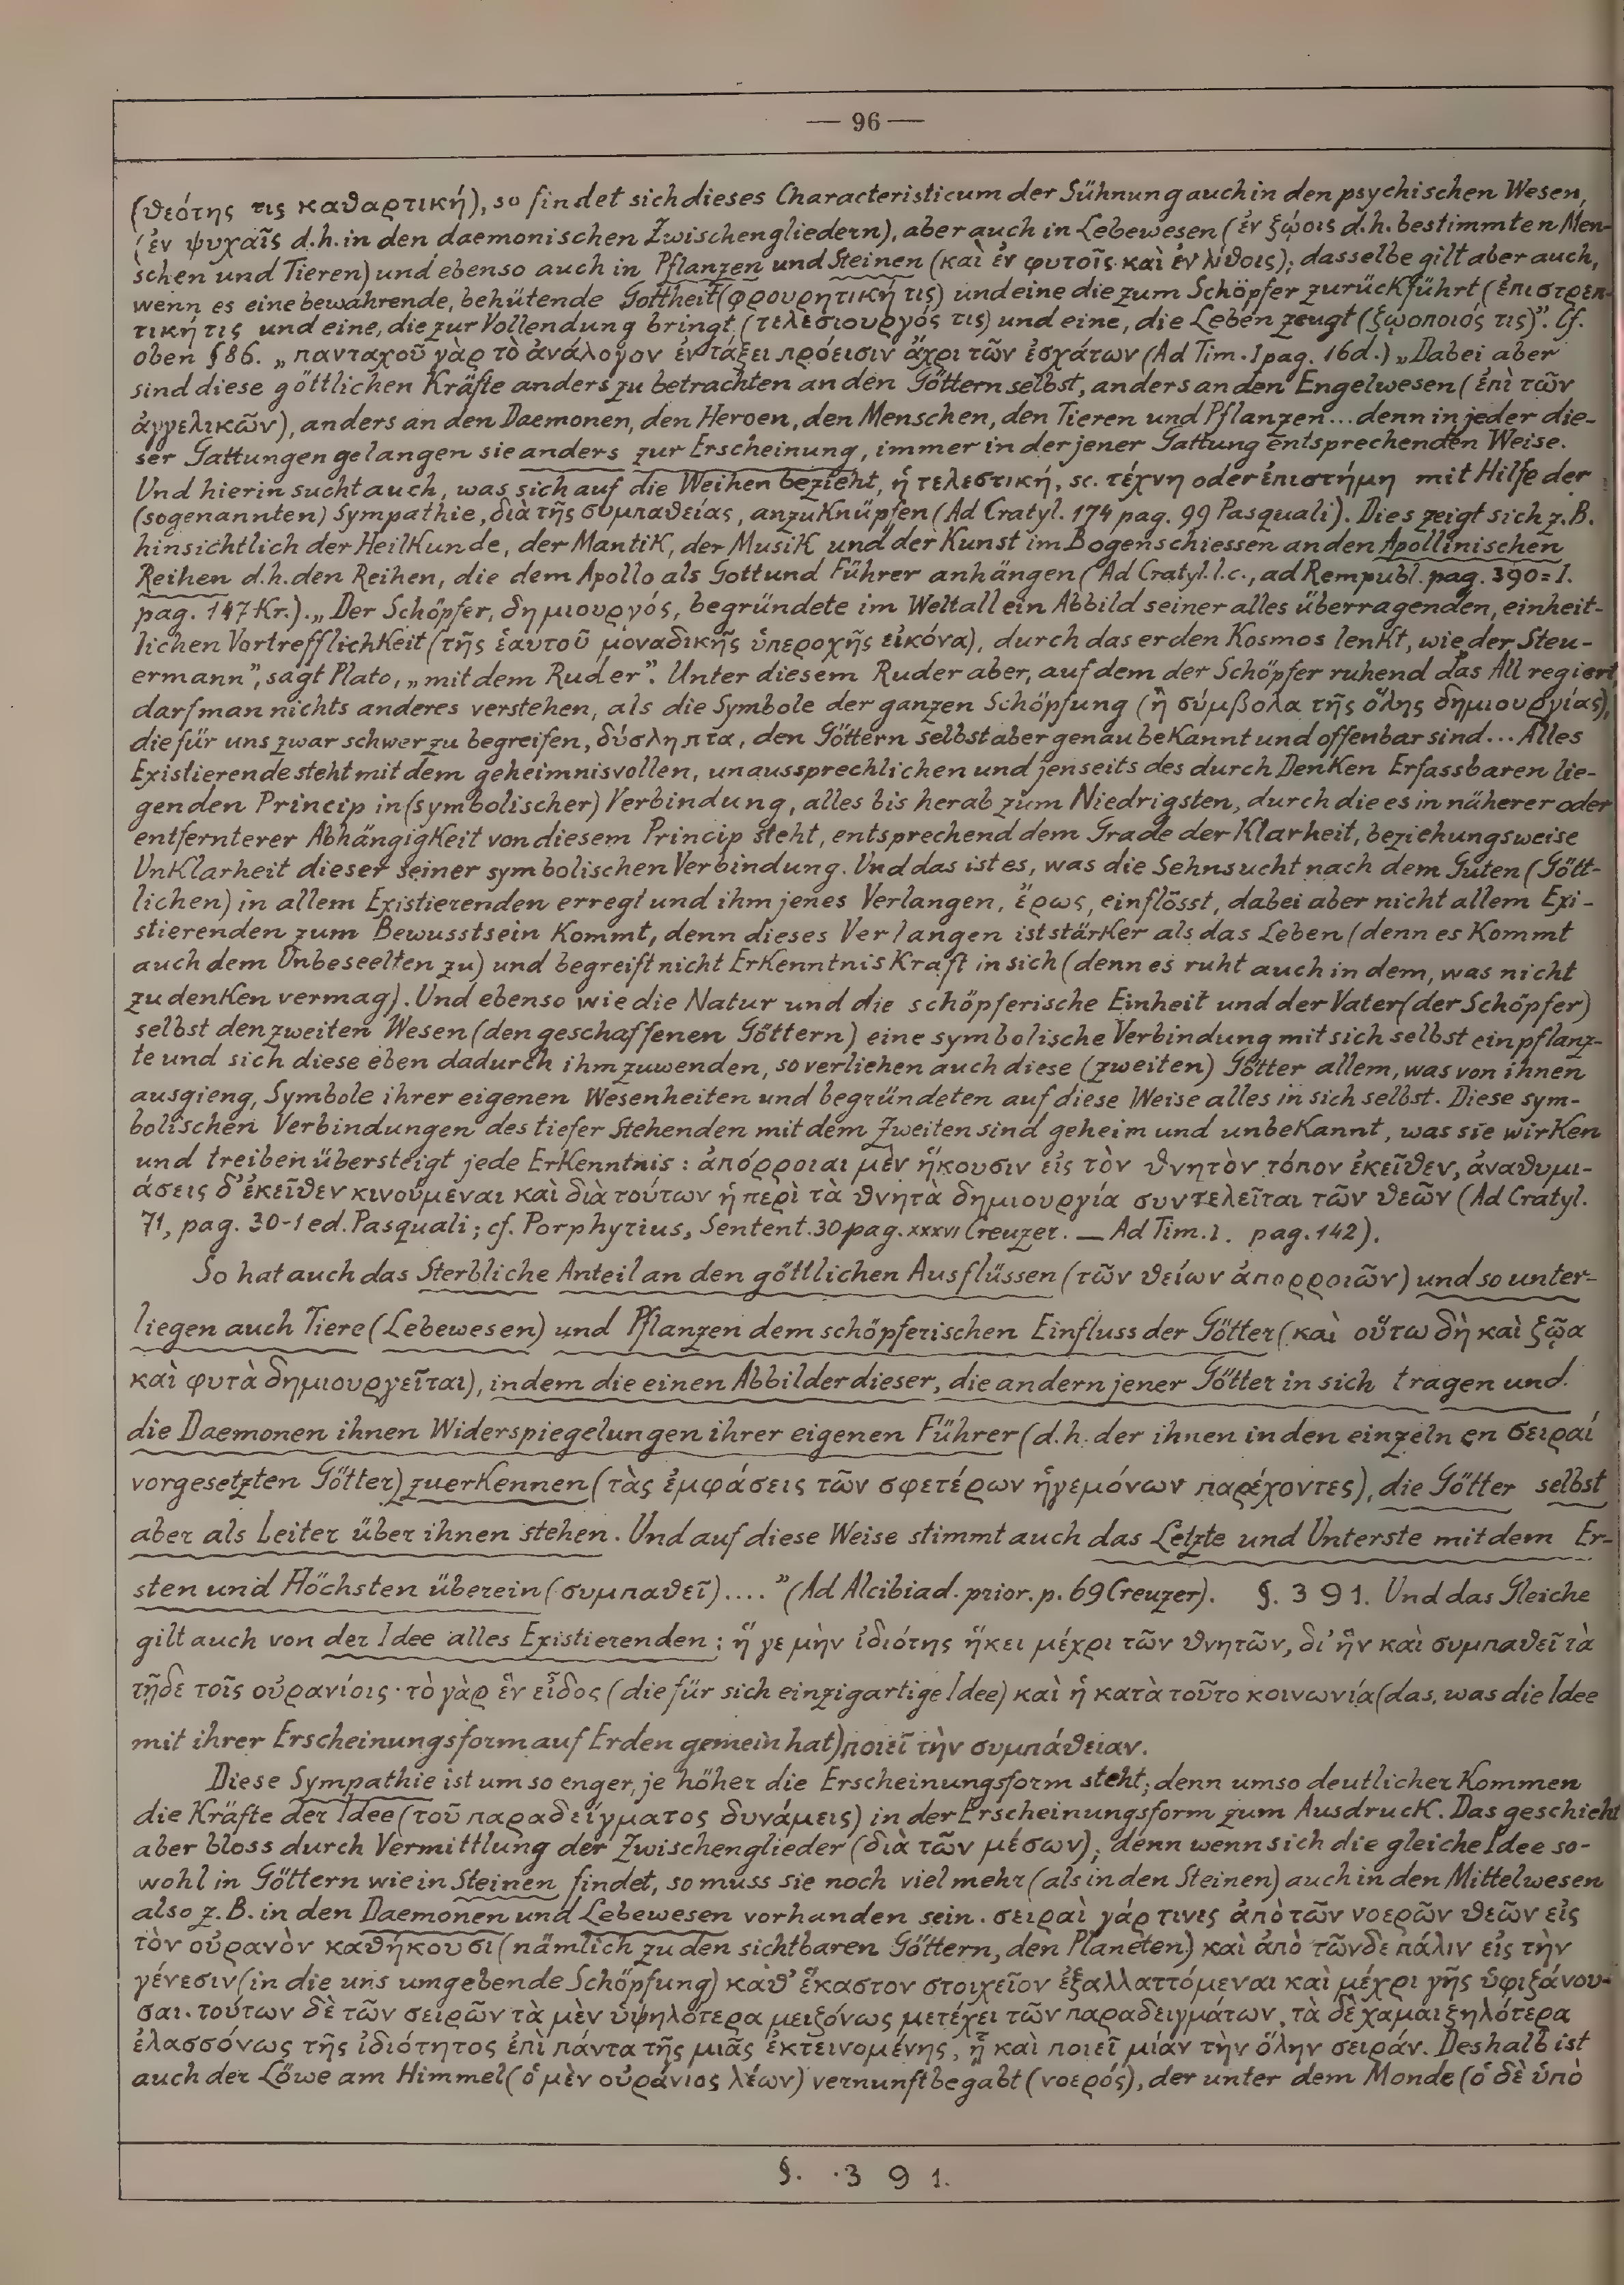 — 96 —
(θεότης τις καθαρτική), so findet sich dieses Characteristicum der Sühnung auch in den psychischen Wesen,
(ἐν ψυχαῖς d.h. in den daemonischen Zwischengliedern), aber auch in Lebewesen (ἐν ζώοις d.h. bestimmten Men-
schen und Tieren) und ebenso auch in Pflanzen und Steinen (καὶ ἐν φυτοῖς καὶ ἐν λίθοις); dasselbe gilt aber auch,
wenn es eine bewahrende, behütende Gottheit (φρουρητική τις) und eine die zum Schöpfer zurückführt (ἐπιστρεπ-
τική τις und eine, die zur Vollendung bringt (τελεσιουργός τις) und eine, die Leben zeugt (ζωοποιός τις)". Cf.
oben § 86. „πανταχοῦ γὰρ τὸ ἀνάλογον ἐν τάξει πρόεισιν ἄχρι τῶν ἐσχάτων (Ad Tim. 1 pag. 16d.) „Dabei aber
sind diese göttlichen Kräfte anders zu betrachten an den Göttern selbst, anders an den Engelwesen (ἐπὶ τῶν
ἀγγελικῶν), anders an den Daemonen, den Heroen, den Menschen, den Tieren und Pflanzen... denn in jeder die-
ser Gattungen gelangen sie anders zur Erscheinung, immer in der jener Gattung entsprechenden Weise.
Und hierin sucht auch, was sich auf die Weihen bezieht, ἡ τελεστική, sc. τέχνη oder ἐπιστήμη mit Hilfe der
(sogenannten) Sympathie, διὰ τῆς συμπαθείας, anzuknüpfen (Ad Cratyl. 174 pag. 99 Pasquali). Dies zeigt sich z.B.
hinsichtlich der Heilkunde, der Mantik, der Musik und der Kunst im Bogenschiessen an den Apollinischen
Reihen d.h. den Reihen, die dem Apollo als Gott und Führer anhängen (Ad Cratyl. l.c., ad Rempubl. pag. 390 = I.
pag. 147 Kr.). „Der Schöpfer, δημιουργός, begründete im Weltall ein Abbild seiner alles überragenden, einheit-
lichen Vortrefflichkeit (τῆς ἑαυτοῦ μοναδικῆς ὑπεροχῆς εἰκόνα), durch das er den Kosmos lenkt, wie der Steu-
ermann", sagt Plato, „mit dem Ruder". Unter diesem Ruder aber, auf dem der Schöpfer ruhend das All regiert,
darf man nichts anderes verstehen, als die Symbole der ganzen Schöpfung (ἢ σύμβολα τῆς ὅλης δημιουργίας),
die für uns zwar schwer zu begreifen, δύσληπτα, den Göttern selbst aber genau bekannt und offenbar sind... Alles
Existierende steht mit dem geheimnisvollen, unaussprechlichen und jenseits des durch Denken Erfassbaren lie-
genden Princip in (symbolischer) Verbindung, alles bis herab zum Niedrigsten, durch die es in näherer oder
entfernterer Abhängigkeit von diesem Princip steht, entsprechend dem Grade der Klarheit, beziehungsweise
Unklarheit dieser seiner symbolischen Verbindung. Und das ist es, was die Sehnsucht nach dem Guten (Gött-
lichen) in allem Existierenden erregt und ihm jenes Verlangen, ἔρως, einflösst, dabei aber nicht allem Exi-
stierenden zum Bewusstsein kommt, denn dieses Verlangen ist stärker als das Leben (denn es kommt
auch dem Unbeseelten zu) und begreift nicht Erkenntniskraft in sich (denn es ruht auch in dem, was nicht
zu denken vermag). Und ebenso wie die Natur und die schöpferische Einheit und der Vater (der Schöpfer)
selbst den zweiten Wesen (den geschaffenen Göttern) eine symbolische Verbindung mit sich selbst einpflanz-
te und sich diese eben dadurch ihm zuwenden, so verliehen auch diese (zweiten) Götter allem, was von ihnen
ausgieng, Symbole ihrer eigenen Wesenheiten und begründeten auf diese Weise alles in sich selbst. Diese sym-
bolischen Verbindungen des tiefer Stehenden mit dem Zweiten sind geheim und unbekannt, was sie wirken
und treiben übersteigt jede Erkenntnis: ἀπόρροιαι μὲν ἥκουσιν εἰς τὸν θνητὸν τόπον ἐκεῖθεν, ἀναθυμι-
άσεις δ' ἐκεῖθεν κινούμεναι καὶ διὰ τούτων ἡ περὶ τὰ θνητὰ δημιουργία συντελεῖται τῶν θεῶν (Ad Cratyl.
71, pag. 30-1 ed. Pasquali; cf. Porphyrius, Sentent. 30 pag. XXXVI Creuzer. — Ad Tim. 1. pag. 142).
So hat auch das Sterbliche Anteil an den göttlichen Ausflüssen (τῶν θείων ἀπορροιῶν) und so unter-
liegen auch Tiere (Lebewesen) und Pflanzen dem schöpferischen Einfluss der Götter (καὶ οὕτω δὴ καὶ ζῷα
καὶ φυτὰ δημιουργεῖται), indem die einen Abbilder dieser, die andern jener Götter in sich tragen und
die Daemonen ihnen Widerspiegelungen ihrer eigenen Führer (d.h. der ihnen in den einzelnen σειραί
vorgesetzten Götter) zuerkennen (τὰς ἐμφάσεις τῶν σφετέρων ἡγεμόνων παρέχοντες), die Götter selbst
aber als Leiter über ihnen stehen. Und auf diese Weise stimmt auch das Letzte und Unterste mit dem Er-
sten und Höchsten überein (συμπαθεῖ) ...." (Ad Alcibiad. prior. p. 69 Creuzer). §. 391. Und das Gleiche
gilt auch von der Idee alles Existierenden: ἥ γε μὴν ἰδιότης ἥκει μέχρι τῶν θνητῶν, δι' ἣν καὶ συμπαθεῖ τὰ
τῇδε τοῖς οὐρανίοις· τὸ γὰρ ἓν εἶδος (die für sich einzigartige Idee) καὶ ἡ κατὰ τοῦτο κοινωνία (das, was die Idee
mit ihrer Erscheinungsform auf Erden gemein hat) ποιεῖ τὴν συμπάθειαν.
Diese Sympathie ist um so enger, je höher die Erscheinungsform steht; denn umso deutlicher kommen
die Kräfte der Idee (τοῦ παραδείγματος δυνάμεις) in der Erscheinungsform zum Ausdruck. Das geschieht
aber bloss durch Vermittlung der Zwischenglieder (διὰ τῶν μέσων); denn wenn sich die gleiche Idee so-
wohl in Göttern wie in Steinen findet, so muss sie noch viel mehr (als in den Steinen) auch in den Mittelwesen
also z.B. in den Daemonen und Lebewesen vorhanden sein. σειραὶ γάρ τινες ἀπὸ τῶν νοερῶν θεῶν εἰς
τὸν οὐρανὸν καθήκουσι (nämlich zu den sichtbaren Göttern, den Planeten) καὶ ἀπὸ τῶνδε πάλιν εἰς τὴν
γένεσιν (in die uns umgebende Schöpfung) καθ' ἕκαστον στοιχεῖον ἐξαλλαττόμεναι καὶ μέχρι γῆς ὑφιζάνου-
σαι. τούτων δὲ τῶν σειρῶν τὰ μὲν ὑψηλότερα μειζόνως μετέχει τῶν παραδειγμάτων, τὰ δὲ χαμαιζηλότερα
ἐλασσόνως τῆς ἰδιότητος ἐπὶ πάντα τῆς μιᾶς ἐκτεινομένης, ᾗ καὶ ποιεῖ μίαν τὴν ὅλην σειράν. Deshalb ist
auch der Löwe am Himmel (ὁ μὲν οὐράνιος λέων) vernunftbegabt (νοερός), der unter dem Monde (ὁ δὲ ὑπὸ
§. 391.